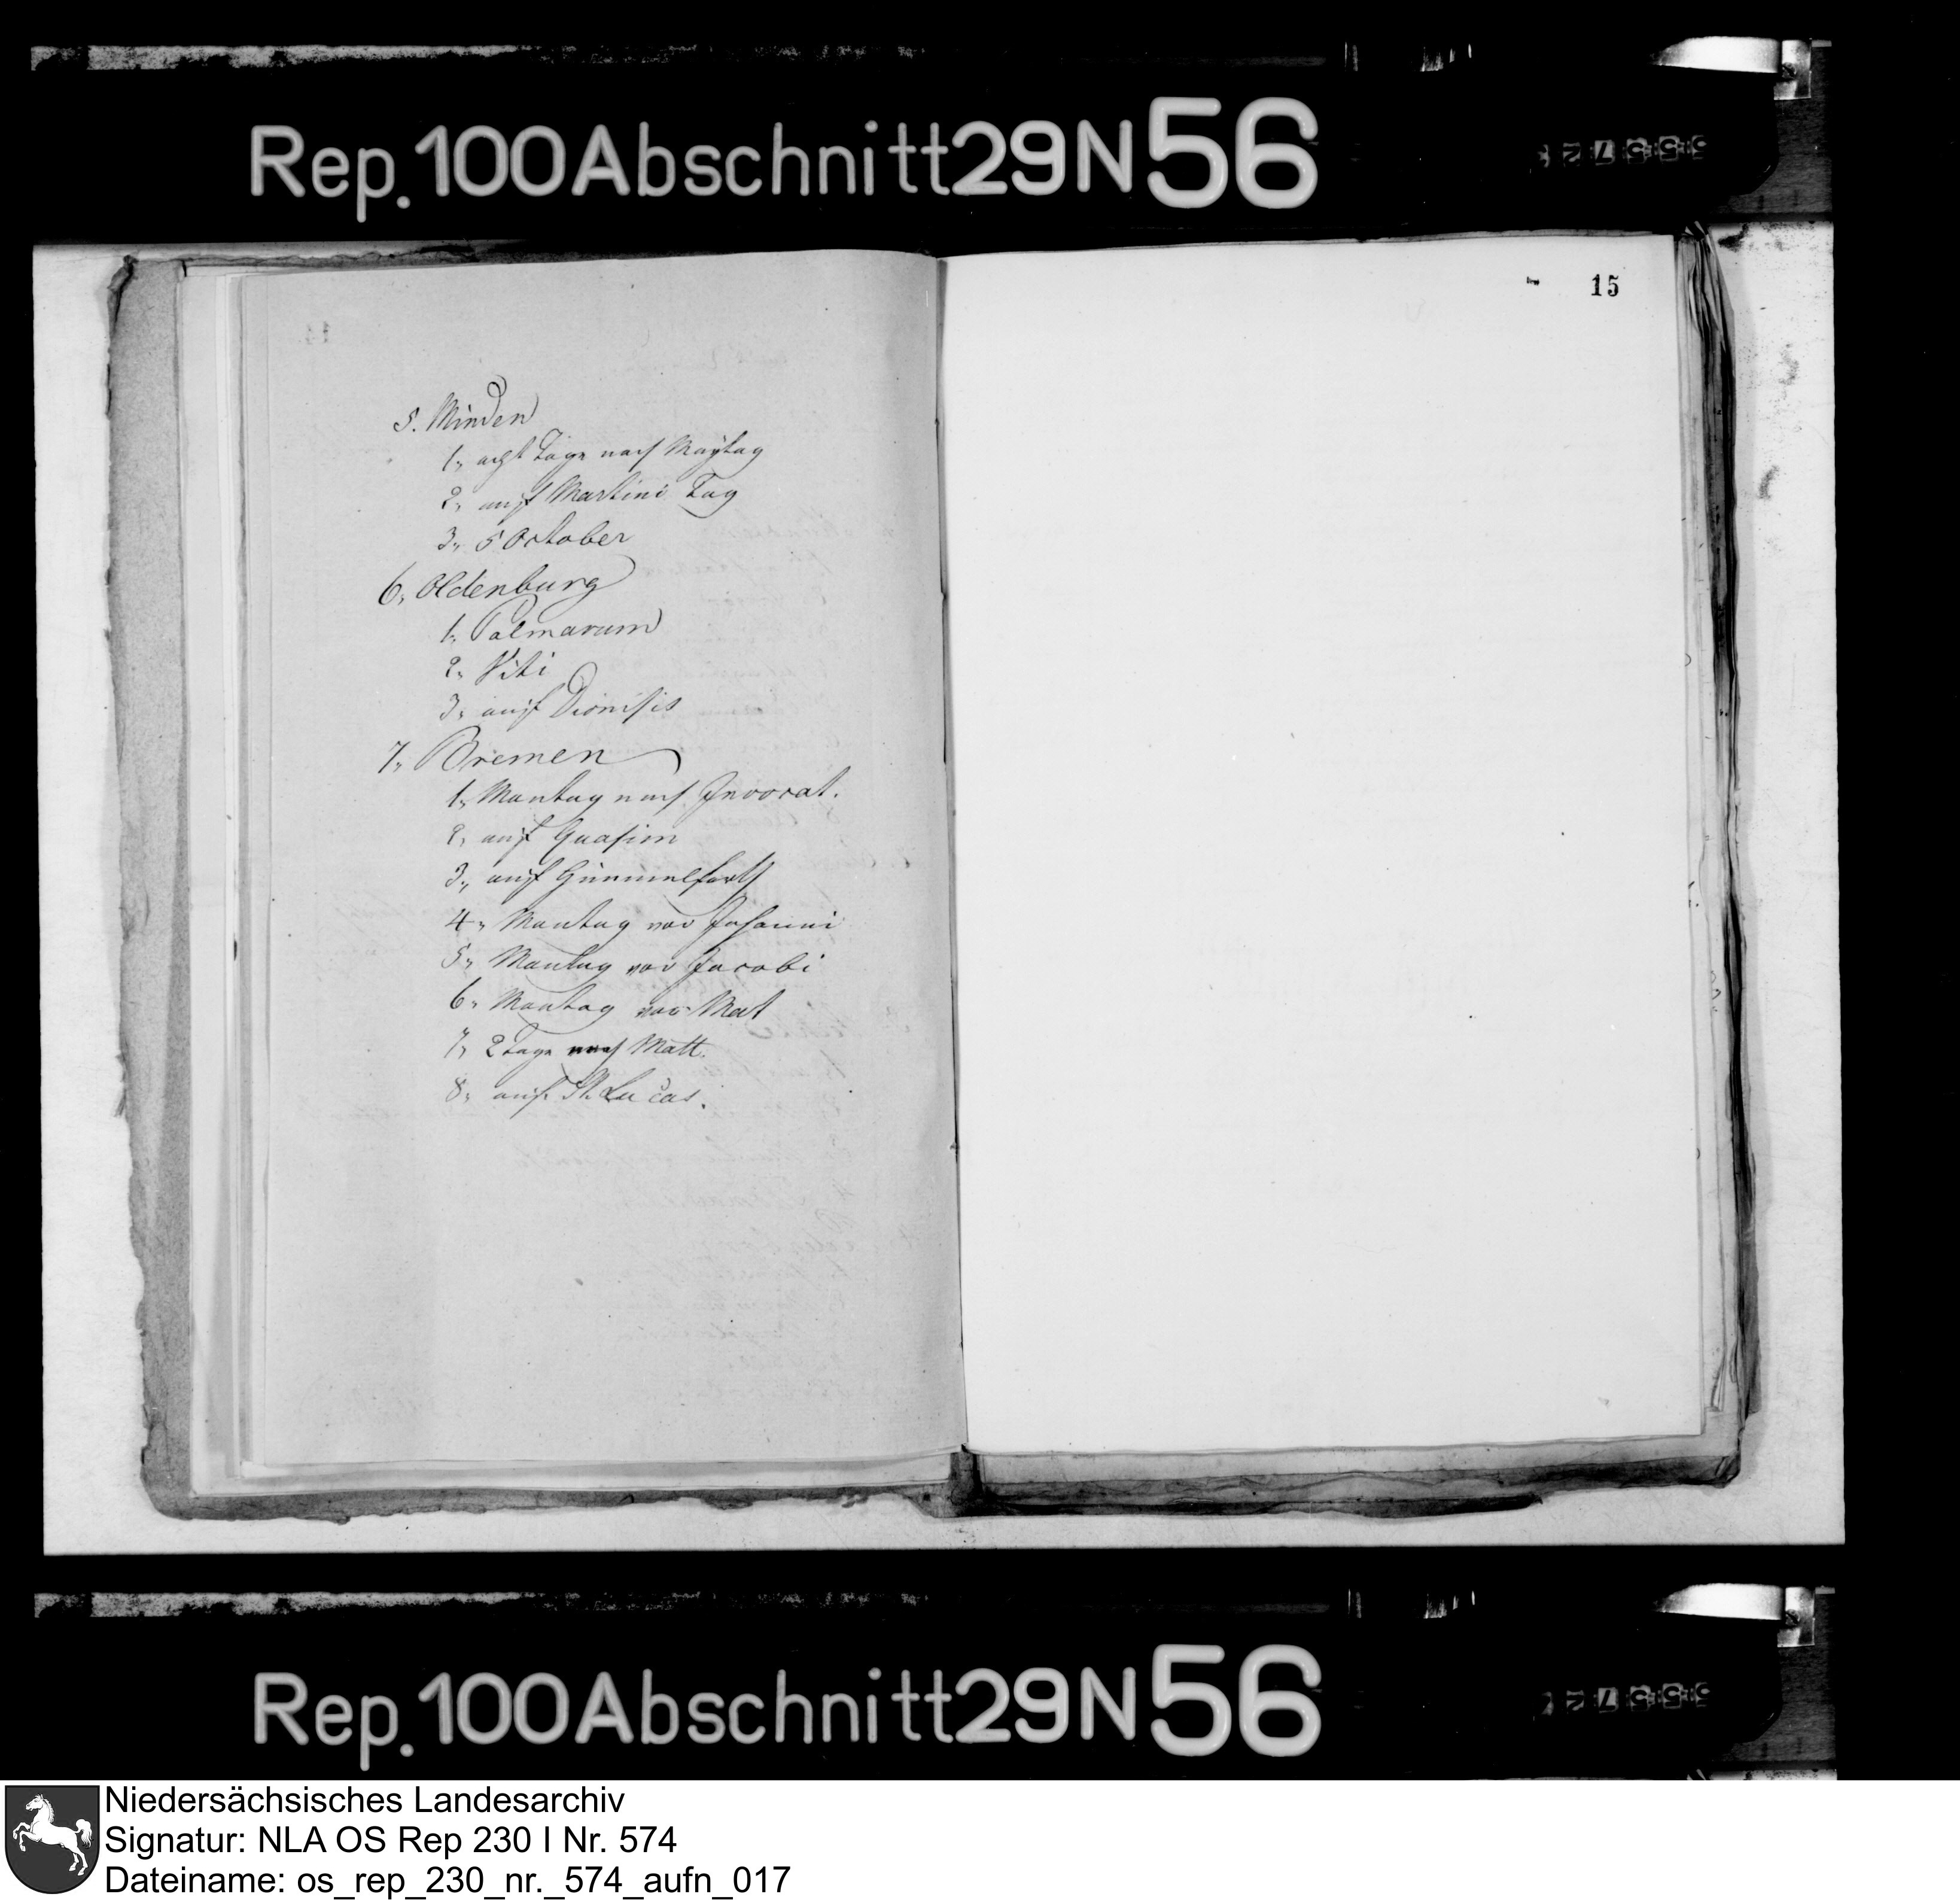 Rep. 100 Abschnitt 29 N 56
15
5. Minden
1, acht Tage nach Maÿtag
2, auf Martini Tag
3, 5 October
6, Oldenburg
1, Palmarum
2, Viti
3, auf Dionisis
7, Bremen
1, Montag nach Invocat.
2, auf Quasim
3, auf Himmelfarth
4, Montag vor Johanni
5, Montag vor Jacobi
6, Montag vor Mat
7, 2 Tage nach Matt.
8, auf St. Lucas.
Rep. 100 Abschnitt 29 N 56
Niedersächsisches Landesarchiv
Signatur: NLA OS Rep 230 I Nr. 574
Dateiname: os_rep_230_nr._574_aufn_017